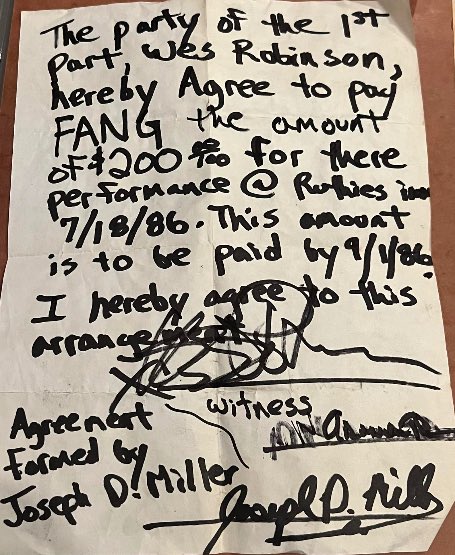 The party of the 1st
Part, Wes Robinson,
hereby Agree to pay
FANG the amount
of $200 00/100 for there
performance @ Ruthies inn
7/18/86. This amount
is to be paid by 9/1/86.
I hereby agree to this
arrangement
witness
Agreement
formed by
Joseph D. Miller
Joseph D. Miller